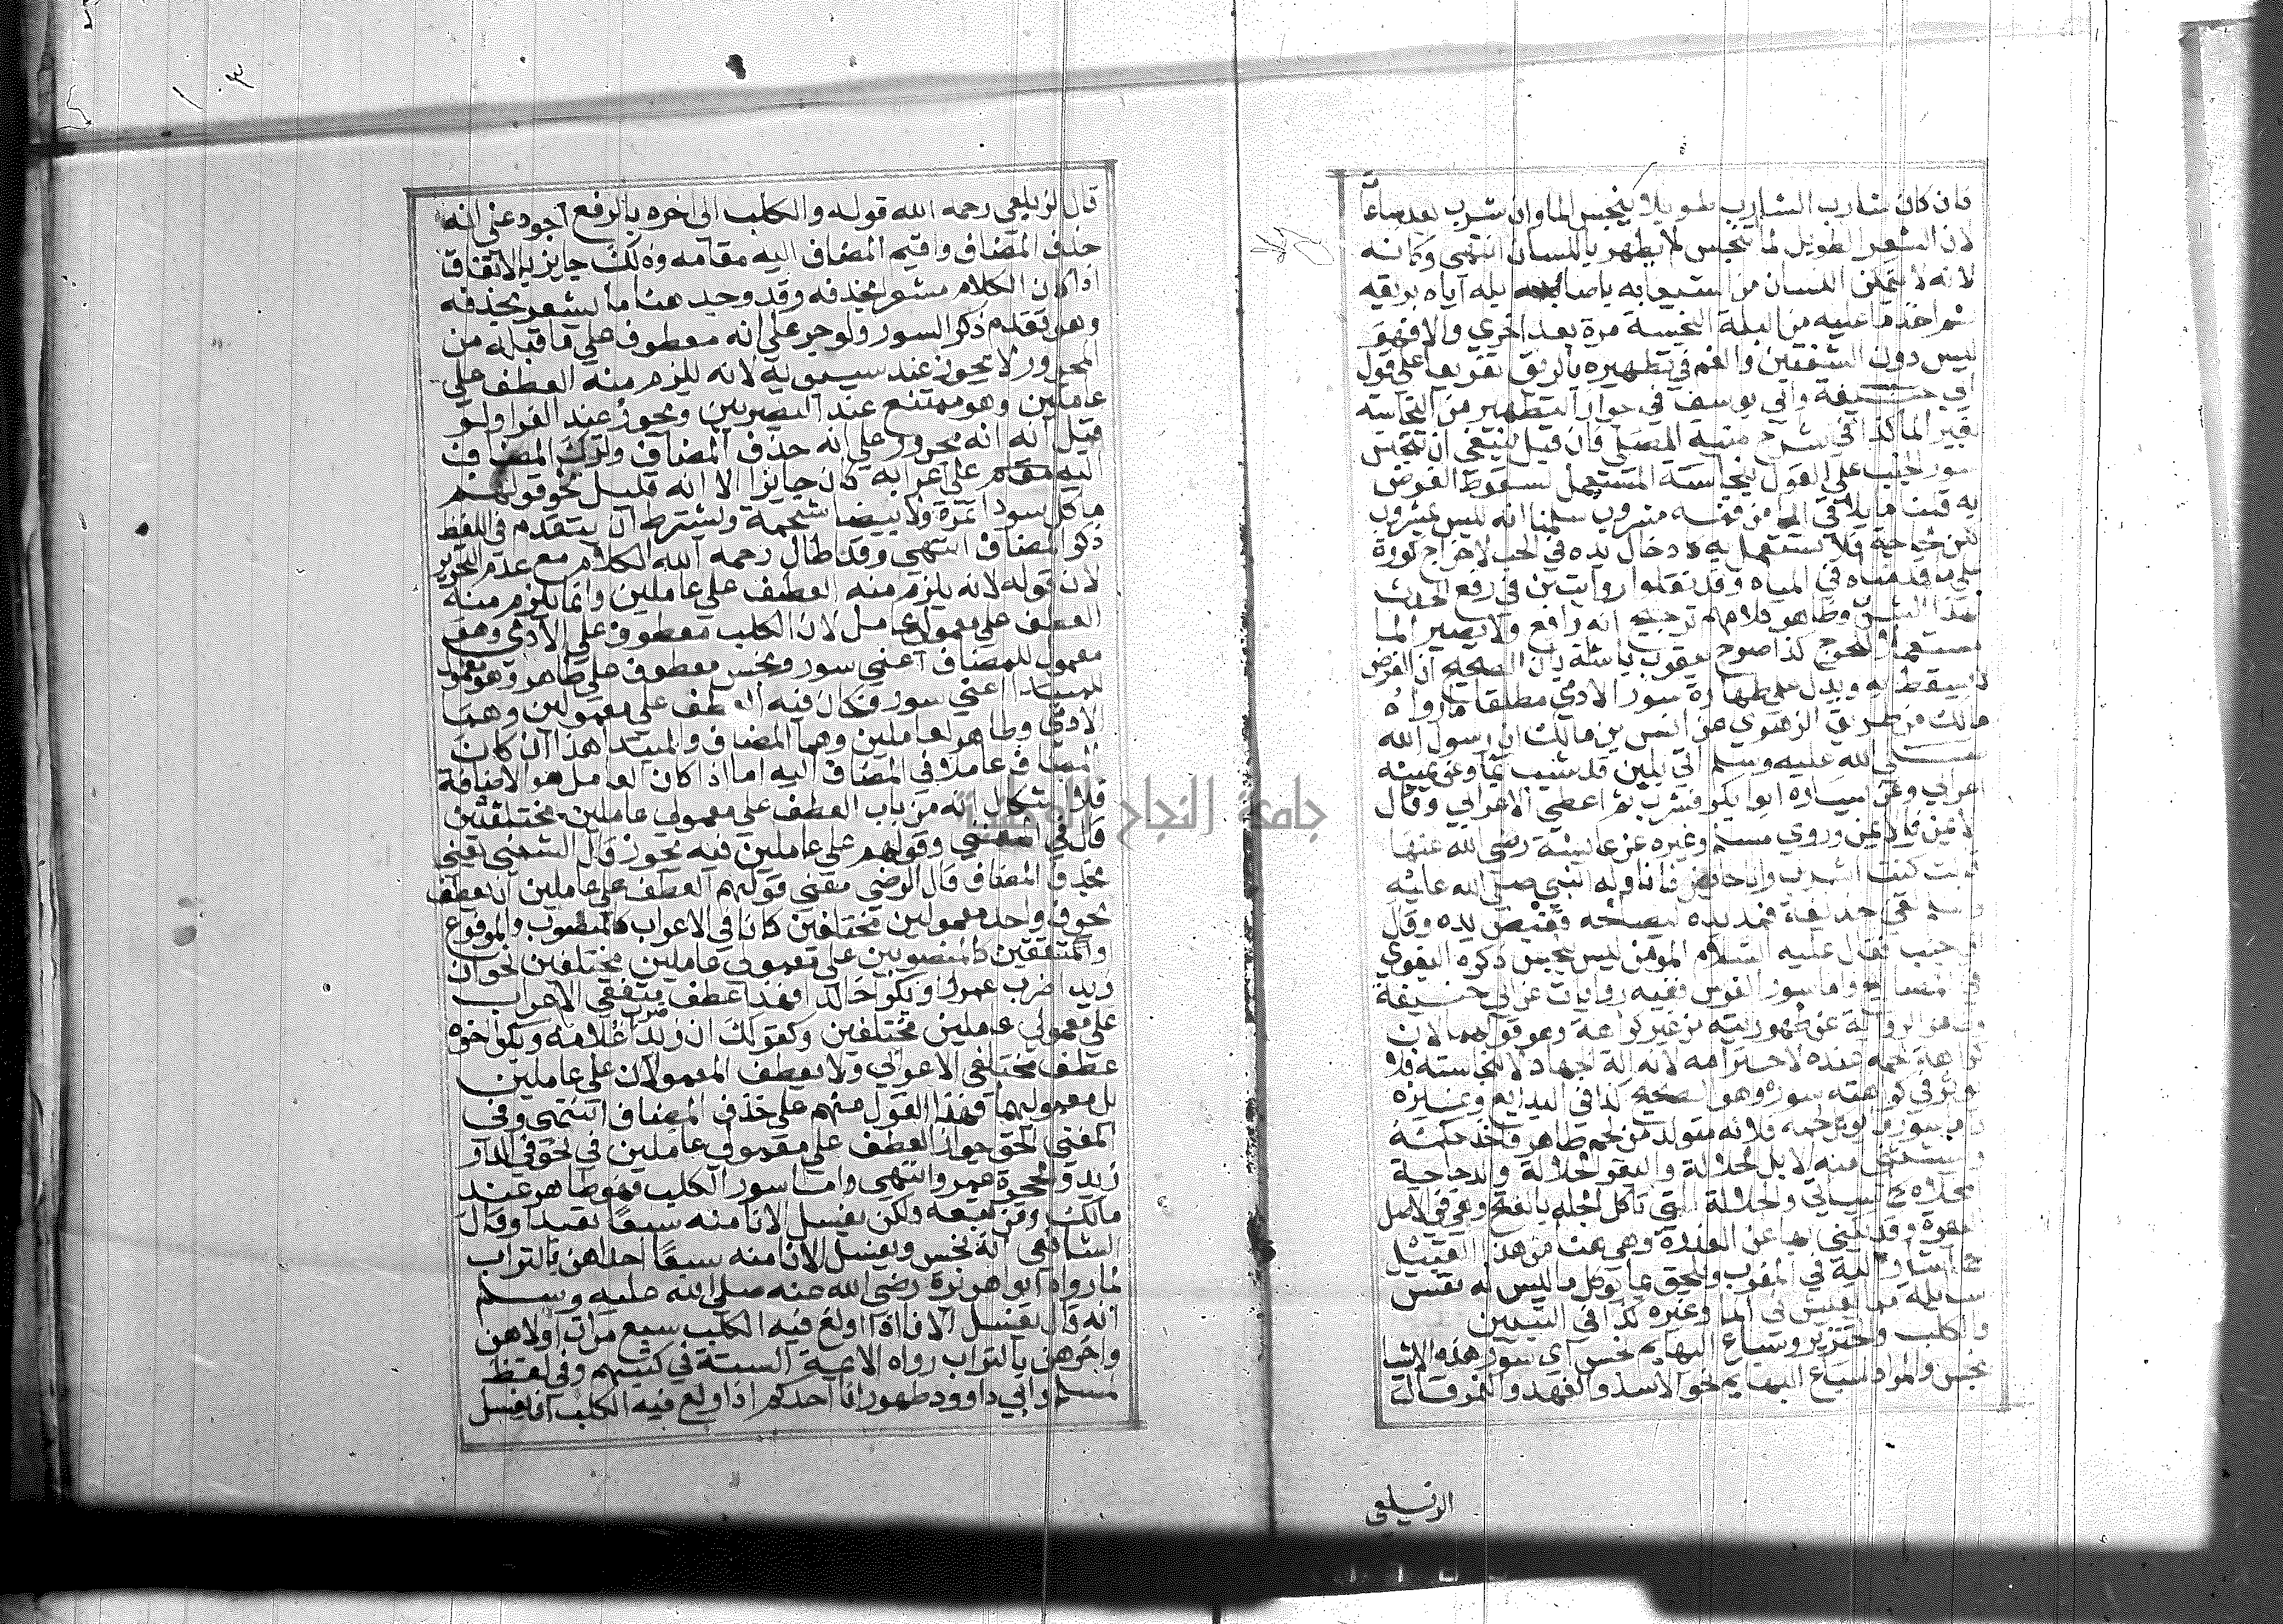 فان كان شارب الشارب طويلا ينجس الما وان شرب بعد ساعات
لان الشعر الطويل لما ينجس لا يطهر باللسان انتهى وكانه
لانه لا يتمكن اللسان من استيعابه باصابة بله اياه بريقه
ثم اخذ ما عليه من البلة النجسة مرة بعد اخرى والا فهو
ليس دون الشفتين والفم في تطهيره بالريق تفريعا على قول
ابي حنيفة وابي يوسف في جواز التطهير من النجاسة
بغير الما كذا في شرح منية المصلي فان قيل ينبغي ان ينجس
سور الجنب على القول بنجاسة المستعمل لسقوط الفرض
به قلت ما يلاقي الما من فمه مشروب سلمنا انه ليس بمشروب
لكن لحاجة فلا يستعمل به كادخال يده في الحب لاخراج كوزه
على ما قدمناه في المياه وقد نقلوا روايتين في رفع الحدث
بهذا الشرب وظاهر كلامهم ترجيح انه رافع ولا يصير الما
مستعملا للحرج كذا صرح يعقوب باشا بان الصحيح ان الفرض
لا يسقط به ويدل على طهارة سور الادمي مطلقا ما رواه
مالك من طريق الزهري عن انس بن مالك ان رسول الله
صلى الله عليه وسلم اتي بلبن قد شيب بما وعن يمينه
اعرابي وعن يساره ابو بكر فشرب ثم اعطى الاعرابي وقال
الايمن فالايمن وروى مسلم وغيره عن عايشة رضي الله عنها
قالت كنت اشرب وانا حايض فاناوله النبي صلى الله عليه
وسلم لقي حذيفة فمد يده ليصافحه فقبض يده وقال
اني جنب فقال عليه السلام المومن ليس بنجس ذكره البغوي
في المصابيح واما سور الفرس ففيه روايات عن ابي حنيفة
وظاهر الرواية عنه طهوريته من غير كراهة وهو قولهما لان
كراهة لحمه عنده لاحترامه لانه الة الجهاد لا لنجاسته فلا
يوثر في كراهته سوره وهو الصحيح كذا في البدايع وغيره
واما سور ما يوكل لحمه فلانه متولد من لحم طاهر فاخذ حكمه
ويستثنى منه الابل الجلالة والبقر الجلالة والدجاجة
المخلاة كما سياتي والجلالة التي تاكل الجلة بالفتح وهي في الاصل
البعرة وقد يكنى بها عن العذرة وهي هنا من هذا القبيل
كما اشار اليه في المغرب ويلحق بما يوكل ما ليس له نفس
سايلة مما يعيش في الما وغيره كذا في التبيين
والكلب والخنزير وسباع البهايم نجس اي سور هذه الاشيا
نجس والمراد بسباع البهايم نحو الاسد والفهد والنمر قال
الزيلعي
١٠٣
قال الزيلعي رحمه الله قوله والكلب الى اخره بالرفع اجود على انه
حذف المضاف واقيم المضاف اليه مقامه وذلك جايز بالاتفاق
اذا كان الكلام مشعرا بحذفه وقد وجد هنا ما يشعر بحذفه
وهو تقدم ذكر السور ولو جر على انه معطوف على ما قبله من
المجرور لا يجوز عند سيبويه لانه يلزم منه العطف على
عاملين وهو ممتنع عند البصريين ويجوز عند الفرا ولو
قيل انه انه مجرور على انه حذف المضاف وترك المضاف
اليه مقام على اعرابه كان جايزا الا انه قليل نحو قولهم
ما كل سودا تمرة ولا بيضا شحمة ويشترط ان يتقدم في اللفظ
ذكر المضاف انتهى وقد طال رحمه الله الكلام مع عدم التحرير
لان قوله لانه يلزم منه العطف على عاملين وانما يلزم منه
العطف على معمولي عامل لان الكلب معطوف على الادمي وهو
معمول للمضاف اعني سور ونجس معطوف على طاهر وهو معمول
للمبتدا اعني سور فكان فيه العطف على معمولين وهما
الادمي وطاهر لعاملين وهما المضاف والمبتدا هذا ان كان
المضاف عاملا في المضاف اليه اما اذا كان العامل هو الاضافة
فلا اشكال انه من باب العطف على معمولي عاملين مختلفين
قال في المغني وقولهم على عاملين فيه تجوز قال الشمني يعني
بحذف المضاف قال الرضي معنى قولهم العطف على عاملين ان تعطف
بحرف واحد معمولين مختلفين كانا في الاعراب كالمنصوب والمرفوع
والمتفقين كالمنصوبين على معمولي عاملين مختلفين نحو ان
زيدا ضرب عمرا وبكرا خالدا فهذا عطف متفقي الاعراب
على معمولي عاملين مختلفين وكقولك ان زيدا ضرب غلامه وبكرا اخوه
عطف مختلفي الاعراب ولا يعطف المعمولان على عاملين
بل معموليهما فهذا القول منهم على حذف المضاف انتهى وفي
المغني الحق جواز العطف على معمولي عاملين في نحو في الدار
زيد والحجرة عمرو انتهى واما سور الكلب فهو طاهر عند
مالك ومن تبعه ولكن يغسل الانا منه سبعا تعبدا وقال
الشافعي انه نجس ويغسل الانا منه سبعا احداهن بالتراب
لما رواه ابو هريرة رضي الله عنه صلى الله عليه وسلم
انه قال يغسل الانا اذا ولغ فيه الكلب سبع مرات اولاهن
واخرهن بالتراب رواه الايمة الستة في كتبهم وفي لفظ
لمسلم وابي داوود طهور انا احدكم اذا ولغ فيه الكلب ان يغسل
جامعة النجاح الوطنية